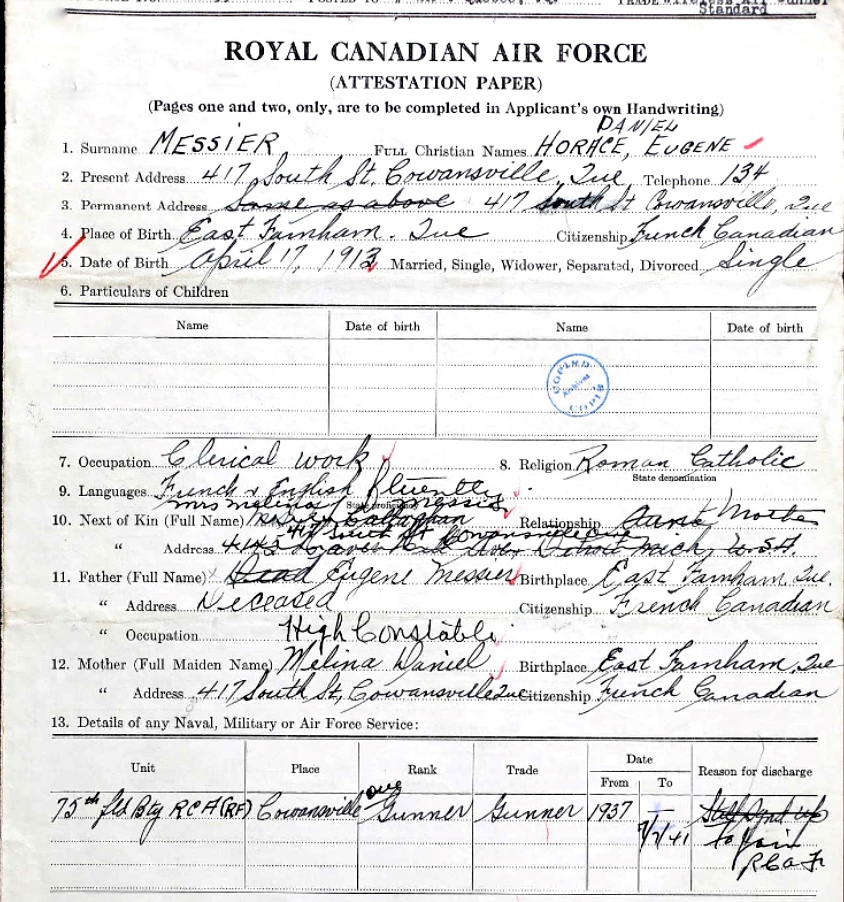 Standard
ROYAL CANADIAN AIR FORCE
(ATTESTATION PAPER)
(Pages one and two, only, are to be completed in Applicant's own Handwriting)
DANIEL
1. Surname MESSIER FULL Christian Names HORACE, EUGENE
2. Present Address 417 South St. Cowansville, Que Telephone 134
3. Permanent Address Same as above 417 South St Cowansville, Que
4. Place of Birth East Farnham. Que Citizenship French Canadian
5. Date of Birth April 17, 1913 Married, Single, Widower, Separated, Divorced Single
6. Particulars of Children
Name Date of birth Name Date of birth
COPIED
Archives
COPIE
7. Occupation Clerical work 8. Religion Roman Catholic
State denomination
9. Languages French & English fluently
State proficiency
Mrs Melina Messier
10. Next of Kin (Full Name) Callaghan Relationship Aunt Mother
417 South St Cowansville Que
" Address Detroit Mich, U.S.A.
11. Father (Full Name) Dead Eugene Messier Birthplace East Farnham, Que.
" Address Deceased Citizenship French Canadian
" Occupation High Constable
12. Mother (Full Maiden Name) Melina Daniel Birthplace East Farnham, Que
" Address 417 South St, Cowansville Que Citizenship French Canadian
13. Details of any Naval, Military or Air Force Service:
Unit Place Rank Trade Date Reason for discharge
From To
75th fld Bty RCA (RF) Cowansville Gunner Gunner 1937 — Still
7/7/41 to join
RCAF